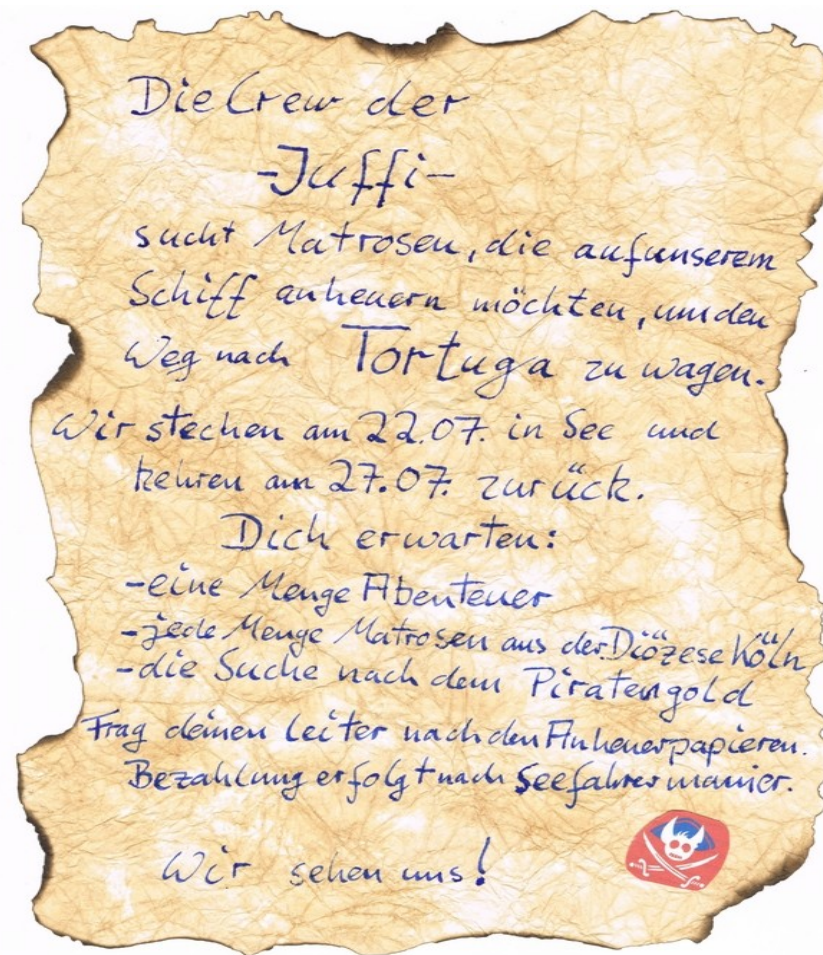 Die Crew der
-Juffi-
sucht Matrosen, die auf unserem
Schiff anheuern möchten, um den
Weg nach Tortuga zu wagen.
Wir stechen am 22.07. in See und
kehren am 27.07. zurück.
Dich erwarten:
-eine Menge Abenteuer
-jede Menge Matrosen aus der Diözese Köln
-die Suche nach dem Piratengold
Frag deinen Leiter nach den Anheuerpapieren.
Bezahlung erfolgt nach Seefahrermanier.
Wir sehen uns!